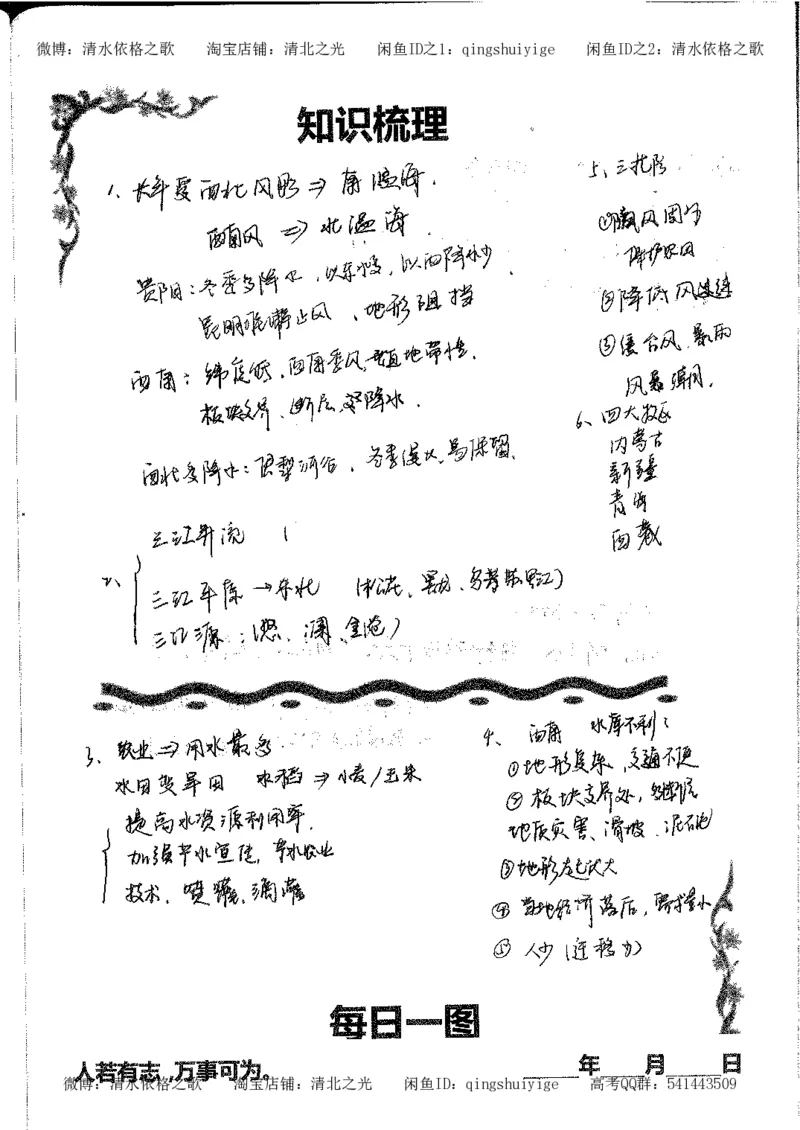 微博：清水依格之歌 淘宝店铺：清北之光 闲鱼ID之1：qingshuiyige 闲鱼ID之2：清水依格之歌
知识梳理
1、长年受西北风影 ⇒ 南温海.
西南风 ⇒ 北温海.
贵阳：冬季多降水，以东 ，以西降水少.
昆明准静止风、地形阻挡
西南：纬度低、西南季风、垂直地带性.
板块交界、断层、多降水.
西北多降水： 河谷，冬季 、易保留.
2、
三江并流
三江平原 → 东北 (松花、黑龙、乌苏里江)
三江源：(怒、澜、金沧)
3、农业 ⇒ 用水最多
水田变旱田 水稻 ⇒ 小麦/玉米
提高水资源利用率.
加强节水宣传，节水农业
技术，喷灌、滴灌
4、西南 水库不利：
①地形复杂，交通不便
②板块交界处，多断层
地质灾害、滑坡、泥石流
③地形起伏大
④当地经济落后，需求量小
⑤人少(迁移少)
5、三北防
①防风固沙
②降低风速
③ 台风、暴雨
风暴潮.
6、四大牧区
内蒙古
新疆
青海
西藏
每日一图
人若有志,万事可为。 年 月 日
微博：清水依格之歌 淘宝店铺：清北之光 闲鱼ID：qingshuiyige 高考QQ群：541443509